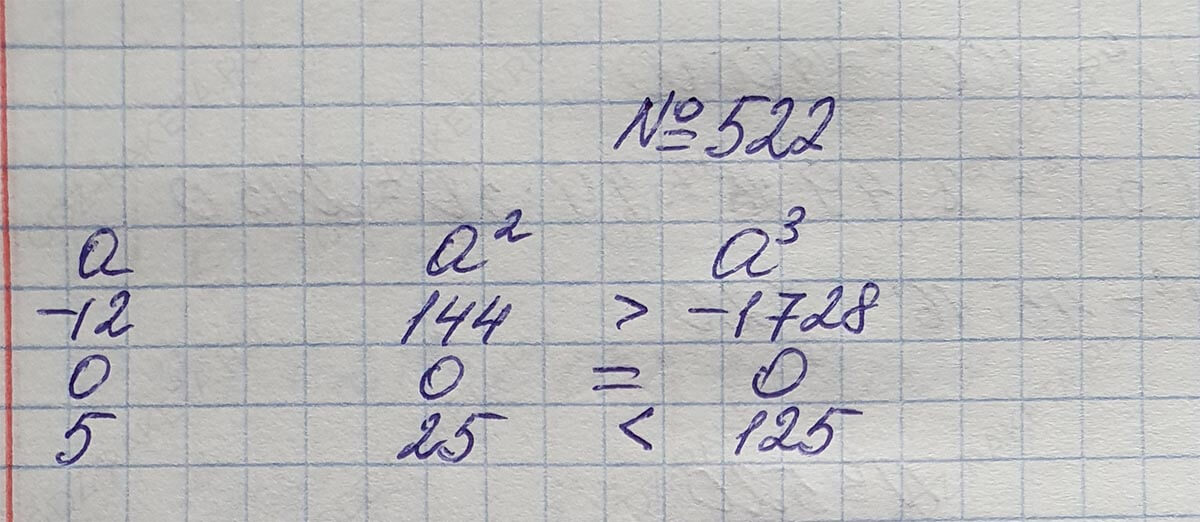 № 522
a a² a³
-12 144 > -1728
0 0 = 0
5 25 < 125